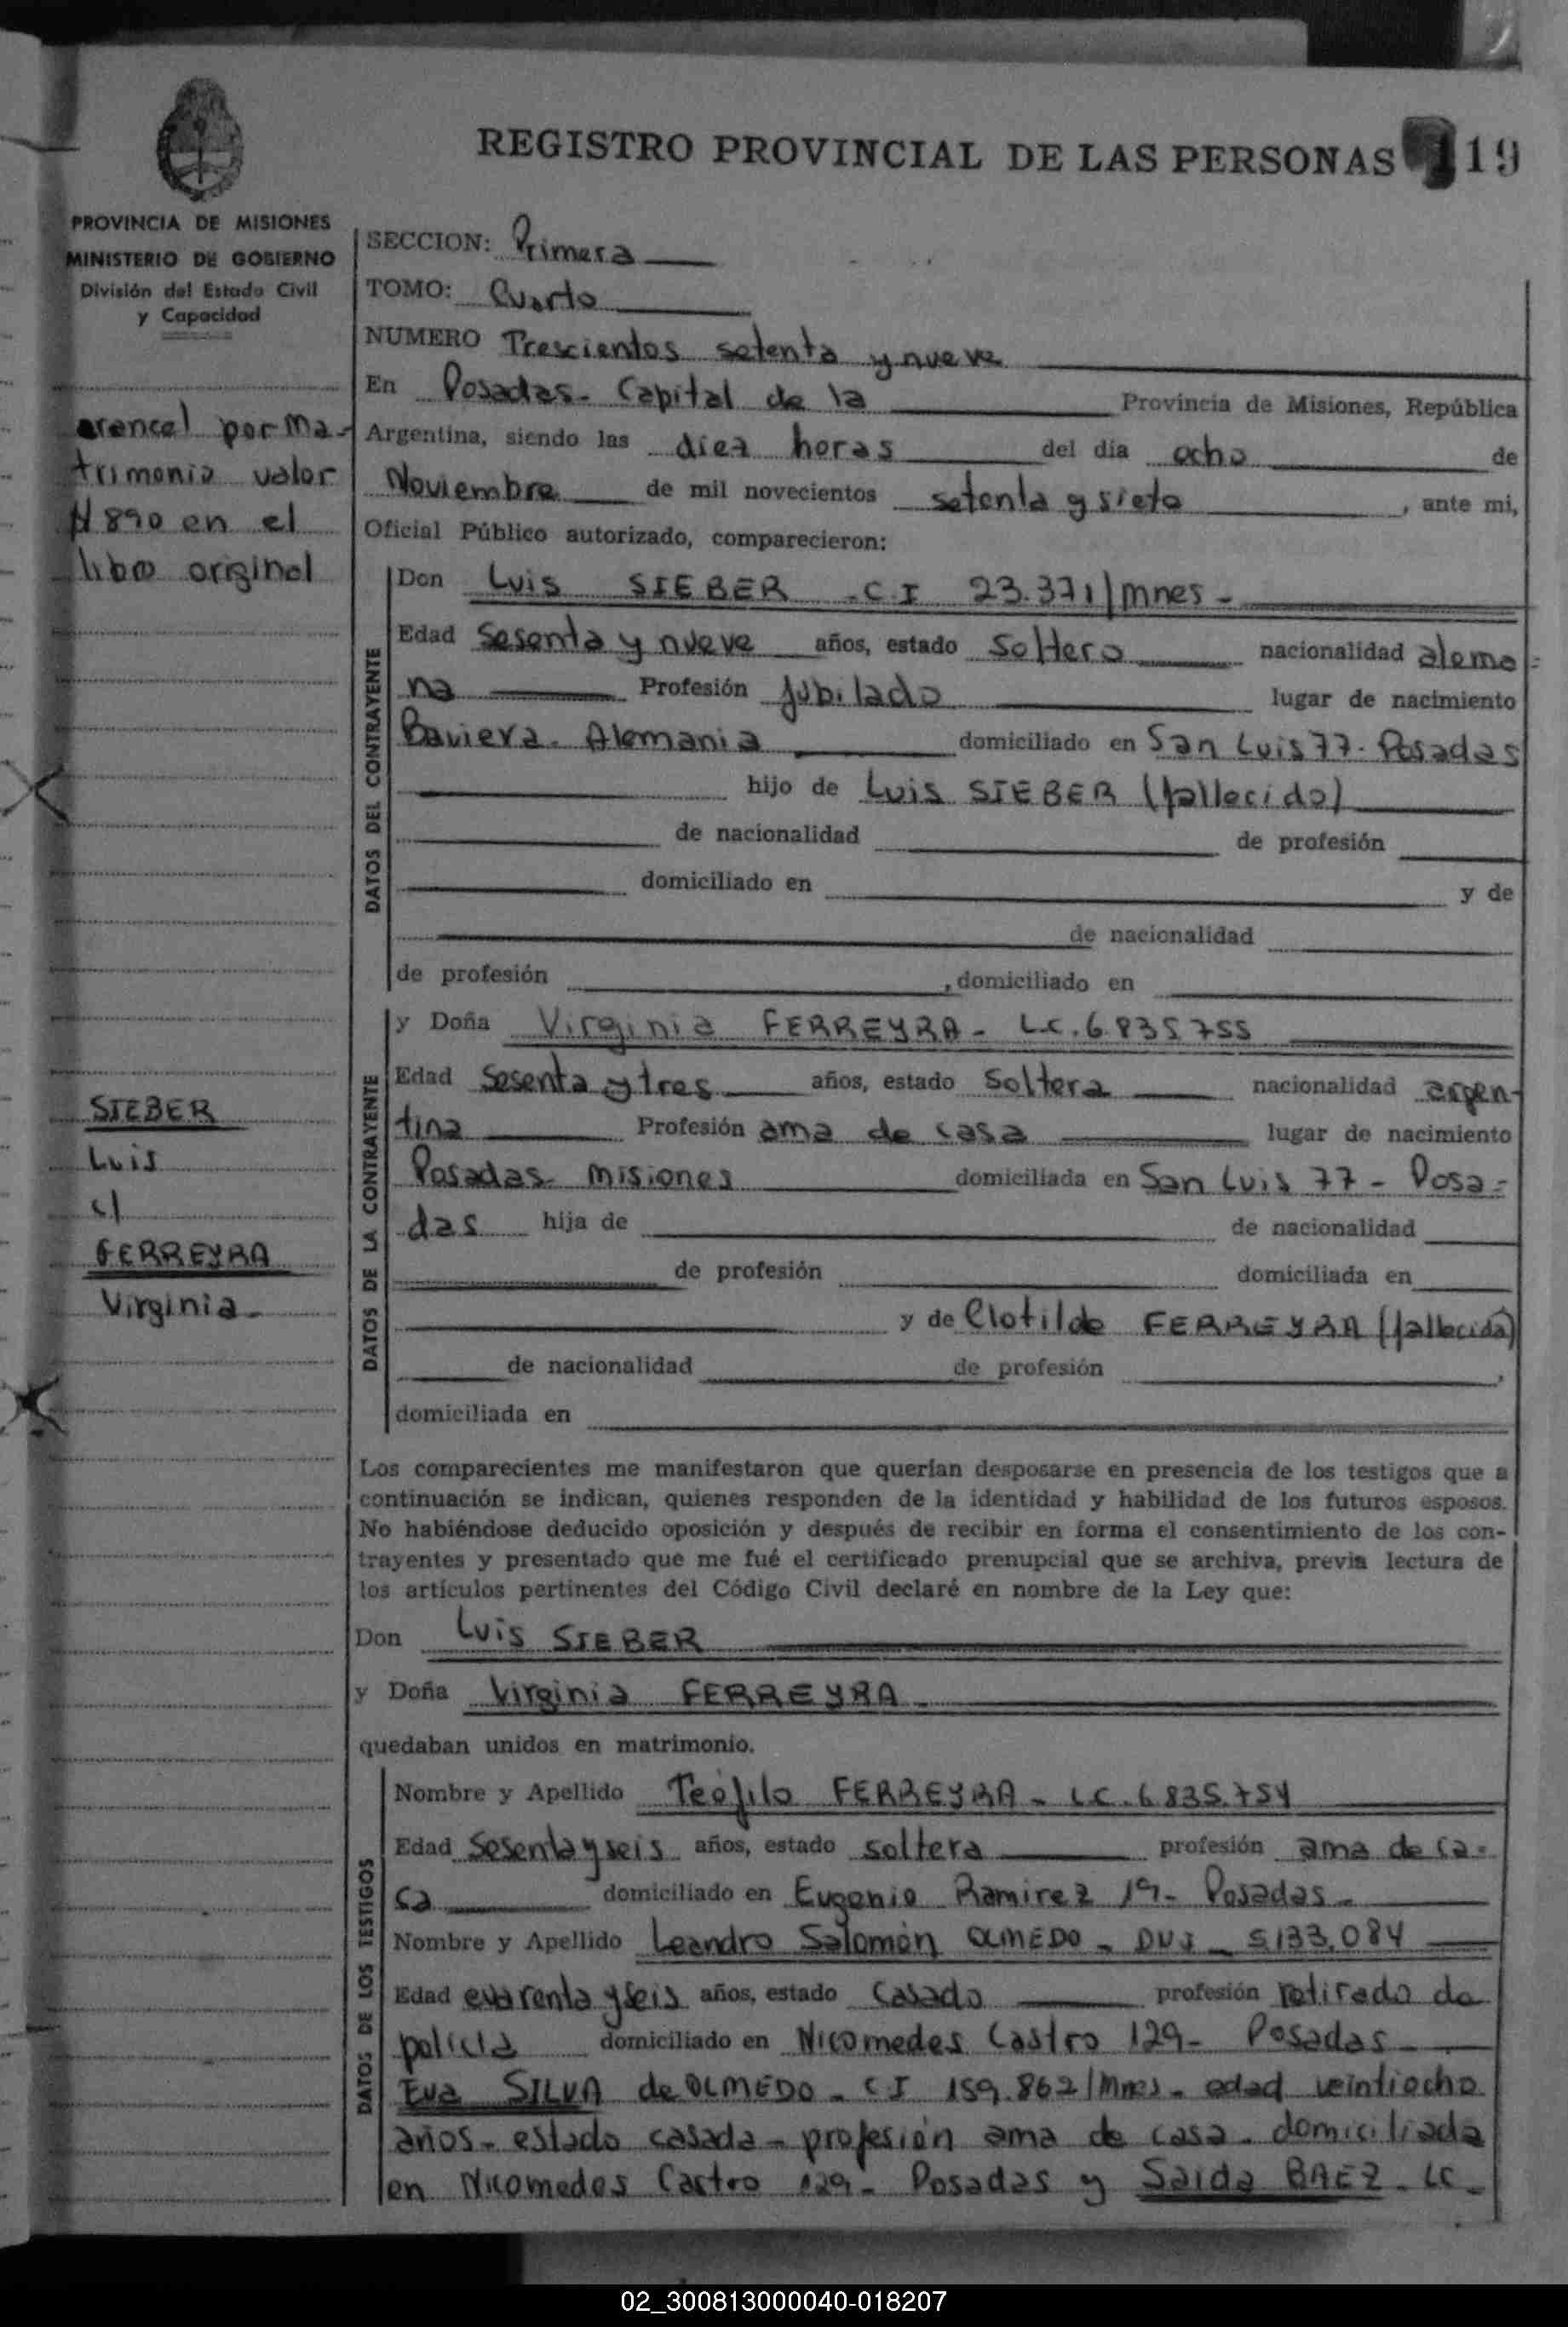 REGISTRO PROVINCIAL DE LAS PERSONAS 119
PROVINCIA DE MISIONES
MINISTERIO DE GOBIERNO
División del Estado Civil
y Capacidad
arancel por ma-
trimonio valor
$ 890 en el
libro original
SIEBER
Luis
c/
FERREYRA
Virginia-
SECCION: Primera
TOMO: Cuarto
NUMERO Trescientos setenta y nueve
En Posadas- Capital de la Provincia de Misiones, República
Argentina, siendo las diez horas del día ocho de
Noviembre de mil novecientos setenta y siete, ante mi,
Oficial Público autorizado, comparecieron:
DATOS DEL CONTRAYENTE
Don Luis SIEBER -C.I 23.371/mnes-
Edad Sesenta y nueve años, estado Soltero nacionalidad alema-
na Profesión Jubilado lugar de nacimiento
Baviera- Alemania domiciliado en San Luis 77- Posadas
hijo de Luis SIEBER (fallecido)
de nacionalidad de profesión
domiciliado en y de
de nacionalidad
de profesión , domiciliado en
DATOS DE LA CONTRAYENTE
y Doña Virginia FERREYRA- L.C. 6.835.755
Edad Sesenta y tres años, estado Soltera nacionalidad argen-
tina Profesión ama de casa lugar de nacimiento
Posadas- Misiones domiciliada en San Luis 77- Posa-
das hija de de nacionalidad
de profesión domiciliada en
y de Clotilde FERREYRA (fallecida)
de nacionalidad de profesión ,
domiciliada en
Los comparecientes me manifestaron que querían desposarse en presencia de los testigos que a
continuación se indican, quienes responden de la identidad y habilidad de los futuros esposos.
No habiéndose deducido oposición y después de recibir en forma el consentimiento de los con-
trayentes y presentado que me fué el certificado prenupcial que se archiva, previa lectura de
los artículos pertinentes del Código Civil declaré en nombre de la Ley que:
Don Luis SIEBER
y Doña Virginia FERREYRA-
quedaban unidos en matrimonio.
DATOS DE LOS TESTIGOS
Nombre y Apellido Teófila FERREYRA- L.C. 6.835.754
Edad Sesenta y seis años, estado soltera profesión ama de ca-
sa domiciliado en Eugenio Ramirez 19- Posadas-
Nombre y Apellido Leandro Salomón OLMEDO- DNI- 5.133.084
Edad cuarenta y seis años, estado casado profesión retirado de
policia domiciliado en Nicomedes Castro 129- Posadas-
Eva SILVA de OLMEDO- CI 159.862/Mnes- edad veintiocho
años- estado casada- profesión ama de casa- domiciliada
en Nicomedes Castro 129- Posadas y Saida BAEZ- LC-
02_300813000040-018207